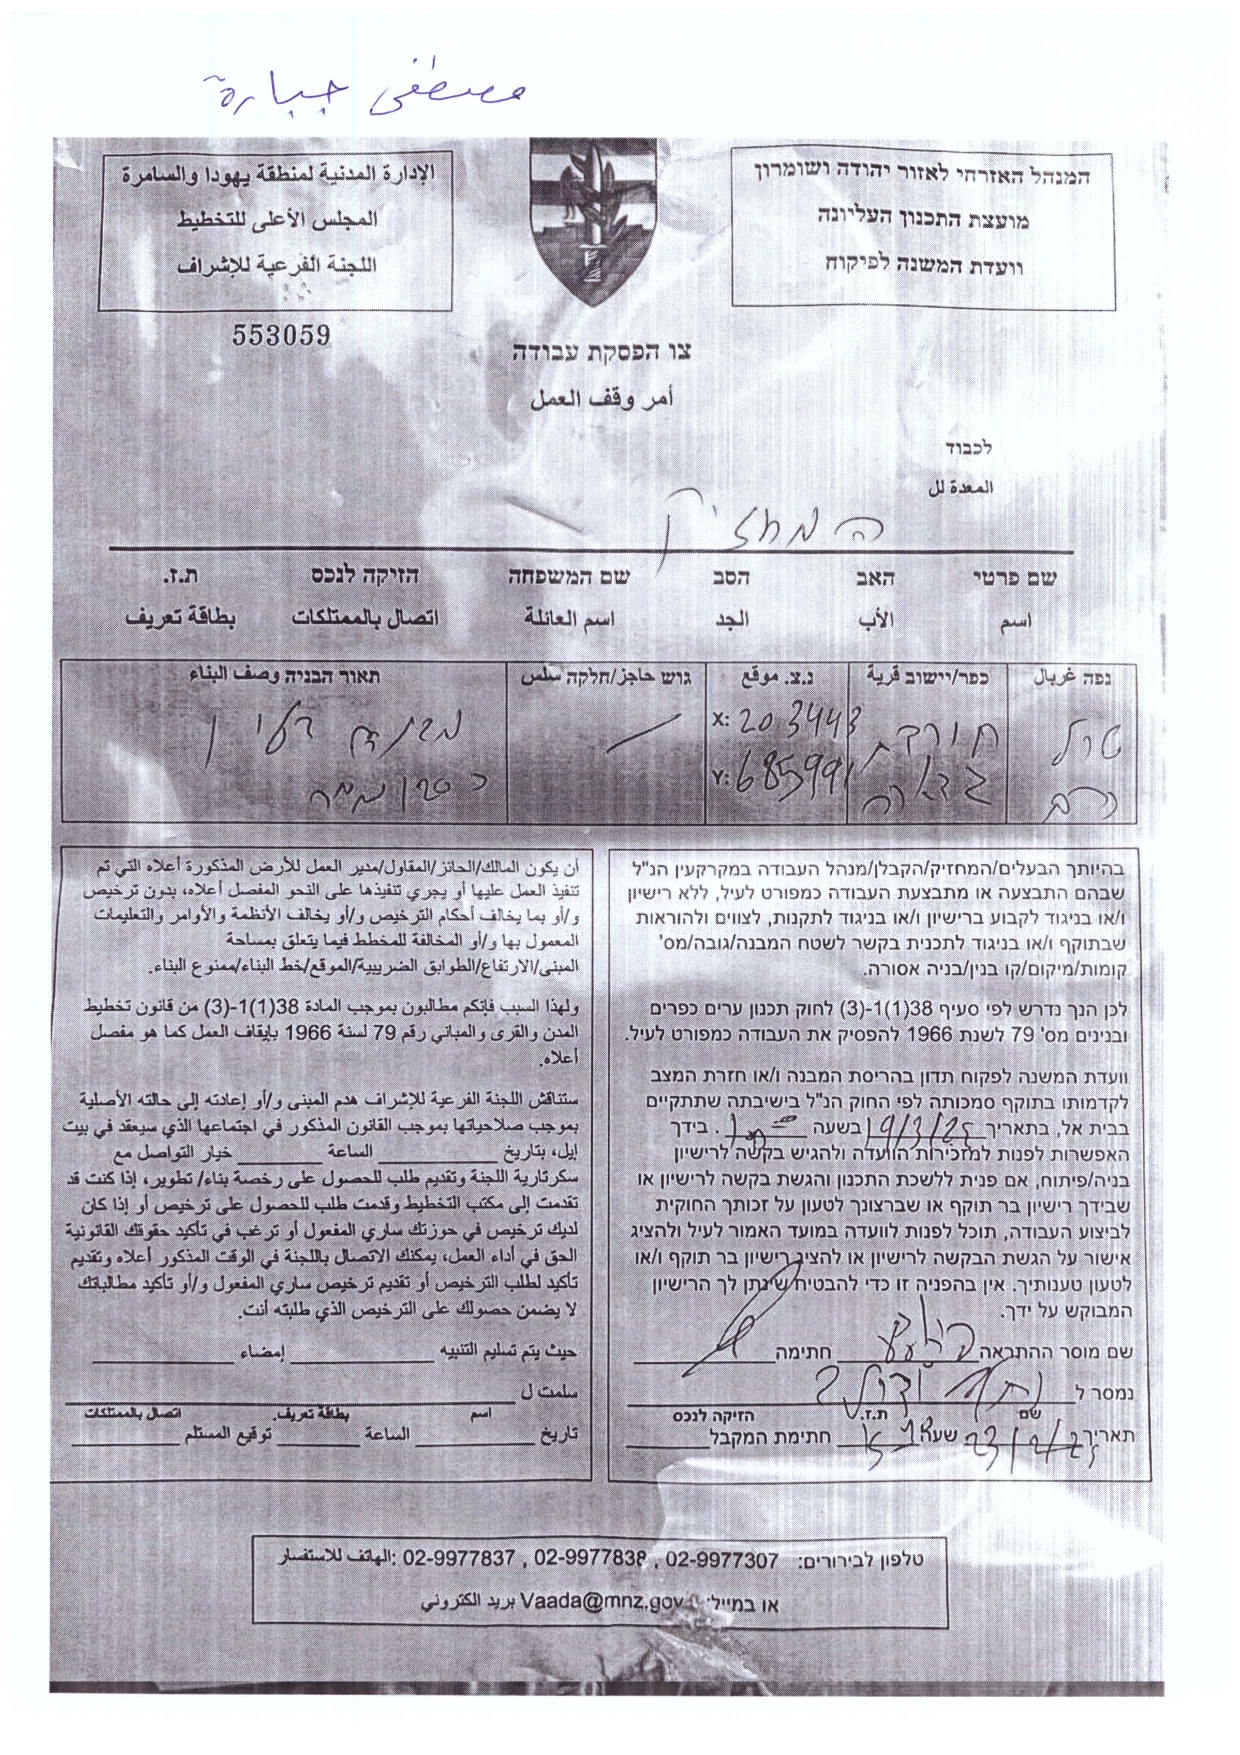 مصطفى جبارة
המנהל האזרחי לאזור יהודה ושומרון
מועצת התכנון העליונה
וועדת המשנה לפיקוח
الإدارة المدنية لمنطقة يهودا والسامرة
المجلس الأعلى للتخطيط
اللجنة الفرعية للإشراف
553059
צו הפסקת עבודה
أمر وقف العمل
לכבוד
المعدة لل
המחזיק
שם פרטי האב הסב שם המשפחה הזיקה לנכס ת.ז.
اسم الأب الجد اسم العائلة اتصال بالممتلكات بطاقة تعريف
נפה غربال כפר/יישוב قرية נ.צ. موقع גוש حاجز/חלקה سلس תאור הבניה وصف البناء
טול כרם
X: 203443
Y: 685991
בהיותך הבעלים/המחזיק/הקבלן/מנהל העבודה במקרקעין הנ"ל
שבהם התבצעה או מתבצעת העבודה כמפורט לעיל, ללא רישיון
ו/או בניגוד לקבוע ברישיון ו/או בניגוד לתקנות, לצווים ולהוראות
שבתוקף ו/או בניגוד לתכנית בקשר לשטח המבנה/גובה/מס'
קומות/מיקום/קו בנין/בניה אסורה.
לכן הנך נדרש לפי סעיף 38(1)1-(3) לחוק תכנון ערים כפרים
ובנינים מס' 79 לשנת 1966 להפסיק את העבודה כמפורט לעיל.
וועדת המשנה לפקוח תדון בהריסת המבנה ו/או חזרת המצב
לקדמותו בתוקף סמכותה לפי החוק הנ"ל בישיבתה שתתקיים
בבית אל, בתאריך 19/3/25 בשעה . בידך
האפשרות לפנות למזכירות הוועדה ולהגיש בקשה לרישיון
בניה/פיתוח, אם פנית ללשכת התכנון והגשת בקשה לרישיון או
שבידך רישיון בר תוקף או שברצונך לטעון על זכותך החוקית
לביצוע העבודה, תוכל לפנות לוועדה במועד האמור לעיל ולהציג
אישור על הגשת הבקשה לרישיון או להציג רישיון בר תוקף ו/או
לטעון טענותיך. אין בהפניה זו כדי להבטיח שינתן לך הרישיון
המבוקש על ידך.
שם מוסר ההתראה חתימה
נמסר ל
שם ת.ז. הזיקה לנכס
תאריך 23/2/25 שעה חתימת המקבל
أن يكون المالك/الحائز/المقاول/مدير العمل للأرض المذكورة أعلاه التي تم
تنفيذ العمل عليها أو يجري تنفيذها على النحو المفصل أعلاه، بدون ترخيص
و/أو بما يخالف أحكام الترخيص و/أو يخالف الأنظمة والأوامر والتعليمات
المعمول بها و/أو المخالفة للمخطط فيما يتعلق بمساحة
المبنى/الارتفاع/الطوابق الضريبية/الموقع/خط البناء/ممنوع البناء.
ولهذا السبب فإنكم مطالبون بموجب المادة 38(1)1-(3) من قانون تخطيط
المدن والقرى والمباني رقم 79 لسنة 1966 بإيقاف العمل كما هو مفصل
أعلاه.
ستناقش اللجنة الفرعية للإشراف هدم المبنى و/أو إعادته إلى حالته الأصلية
بموجب صلاحياتها بموجب القانون المذكور في اجتماعها الذي سيعقد في بيت
إيل، بتاريخ الساعة خيار التواصل مع
سكرتارية اللجنة وتقديم طلب للحصول على رخصة بناء/ تطوير، إذا كنت قد
تقدمت إلى مكتب التخطيط وقدمت طلب للحصول على ترخيص أو إذا كان
لديك ترخيص في حوزتك ساري المفعول أو ترغب في تأكيد حقوقك القانونية
الحق في أداء العمل، يمكنك الاتصال باللجنة في الوقت المذكور أعلاه وتقديم
تأكيد لطلب الترخيص أو تقديم ترخيص ساري المفعول و/أو تأكيد مطالباتك
لا يضمن حصولك على الترخيص الذي طلبته أنت.
حيث يتم تسليم التنبيه إمضاء
سلمت ل
اسم بطاقة تعريف. اتصال بالممتلكات
تاريخ الساعة توقيع المستلم
טלפון לבירורים: 02-9977307 , 02-9977838 , 02-9977837 :الهاتف للاستفسار
או במייל: Vaada@mnz.gov بريد الكتروني